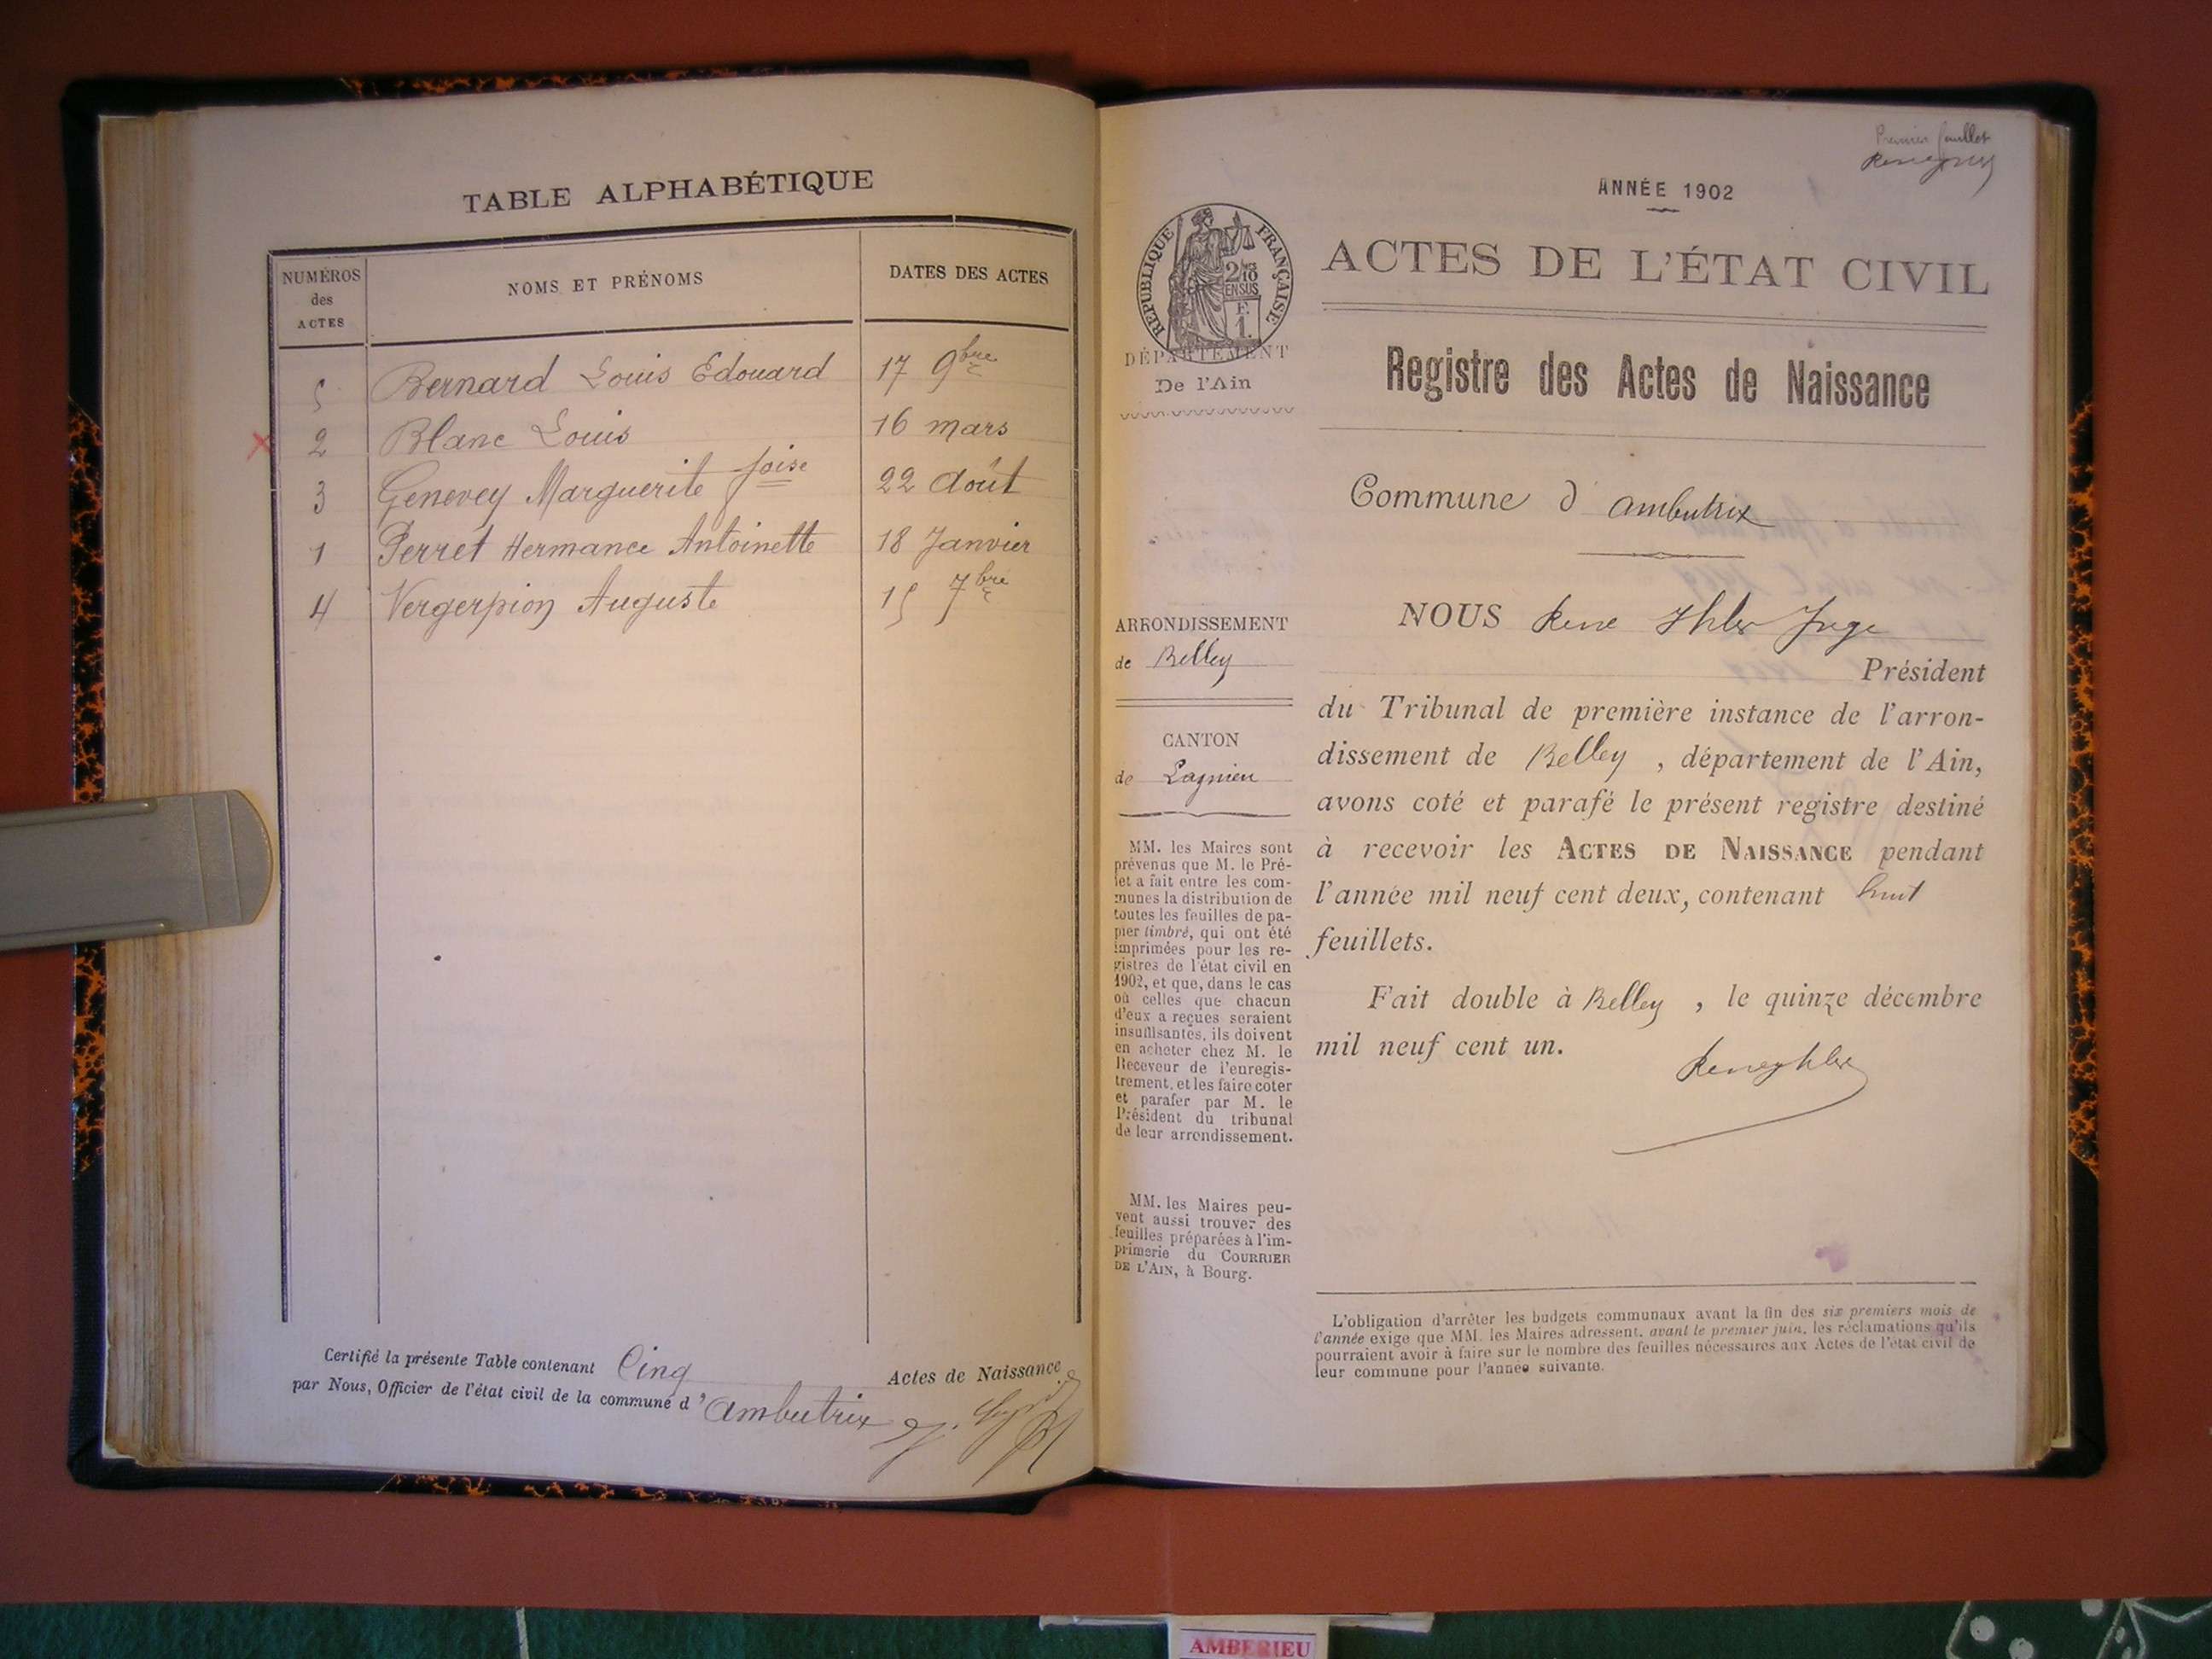 TABLE ALPHABÉTIQUE
NUMÉROS
des
ACTES
NOMS ET PRÉNOMS
DATES DES ACTES
5 Bernard Louis Edouard 17 9bre
2 Blanc Louis 16 mars
3 Genevey Marguerite foise 22 Août
1 Perret Hermance Antoinette 18 Janvier
4 Vergerpion Auguste 15 7bre
Certifié la présente Table contenant Cinq Actes de Naissance
par Nous, Officier de l'état civil de la commune d'Ambutrix
Premier feuillet
ANNÉE 1902
RÉPUBLIQUE FRANÇAISE
DÉPARTEMENT
De l'Ain
ACTES DE L'ÉTAT CIVIL
Registre des Actes de Naissance
Commune d'ambutrix
ARRONDISSEMENT
de Belley
CANTON
de Lagnieu
MM. les Maires sont
prévenus que M. le Pré-
fet a fait entre les com-
munes la distribution de
toutes les feuilles de pa-
pier timbré, qui ont été
imprimées pour les re-
gistres de l'état civil en
1902, et que, dans le cas
où celles que chacun
d'eux a reçues seraient
insuffisantes, ils doivent
en acheter chez M. le
Receveur de l'enregis-
trement, et les faire coter
et parafer par M. le
Président du tribunal
de leur arrondissement.
MM. les Maires peu-
vent aussi trouver des
feuilles préparées à l'im-
primerie du COURRIER
DE L'AIN, à Bourg.
NOUS René Ihler Juge
Président
du Tribunal de première instance de l'arron-
dissement de Belley, département de l'Ain,
avons coté et parafé le présent registre destiné
à recevoir les ACTES DE NAISSANCE pendant
l'année mil neuf cent deux, contenant huit
feuillets.
Fait double à Belley, le quinze décembre
mil neuf cent un.
L'obligation d'arrêter les budgets communaux avant la fin des six premiers mois de
l'année exige que MM. les Maires adressent, avant le premier juin, les réclamations qu'ils
pourraient avoir à faire sur le nombre des feuilles nécessaires aux Actes de l'état civil de
leur commune pour l'année suivante.
AMBERIEU